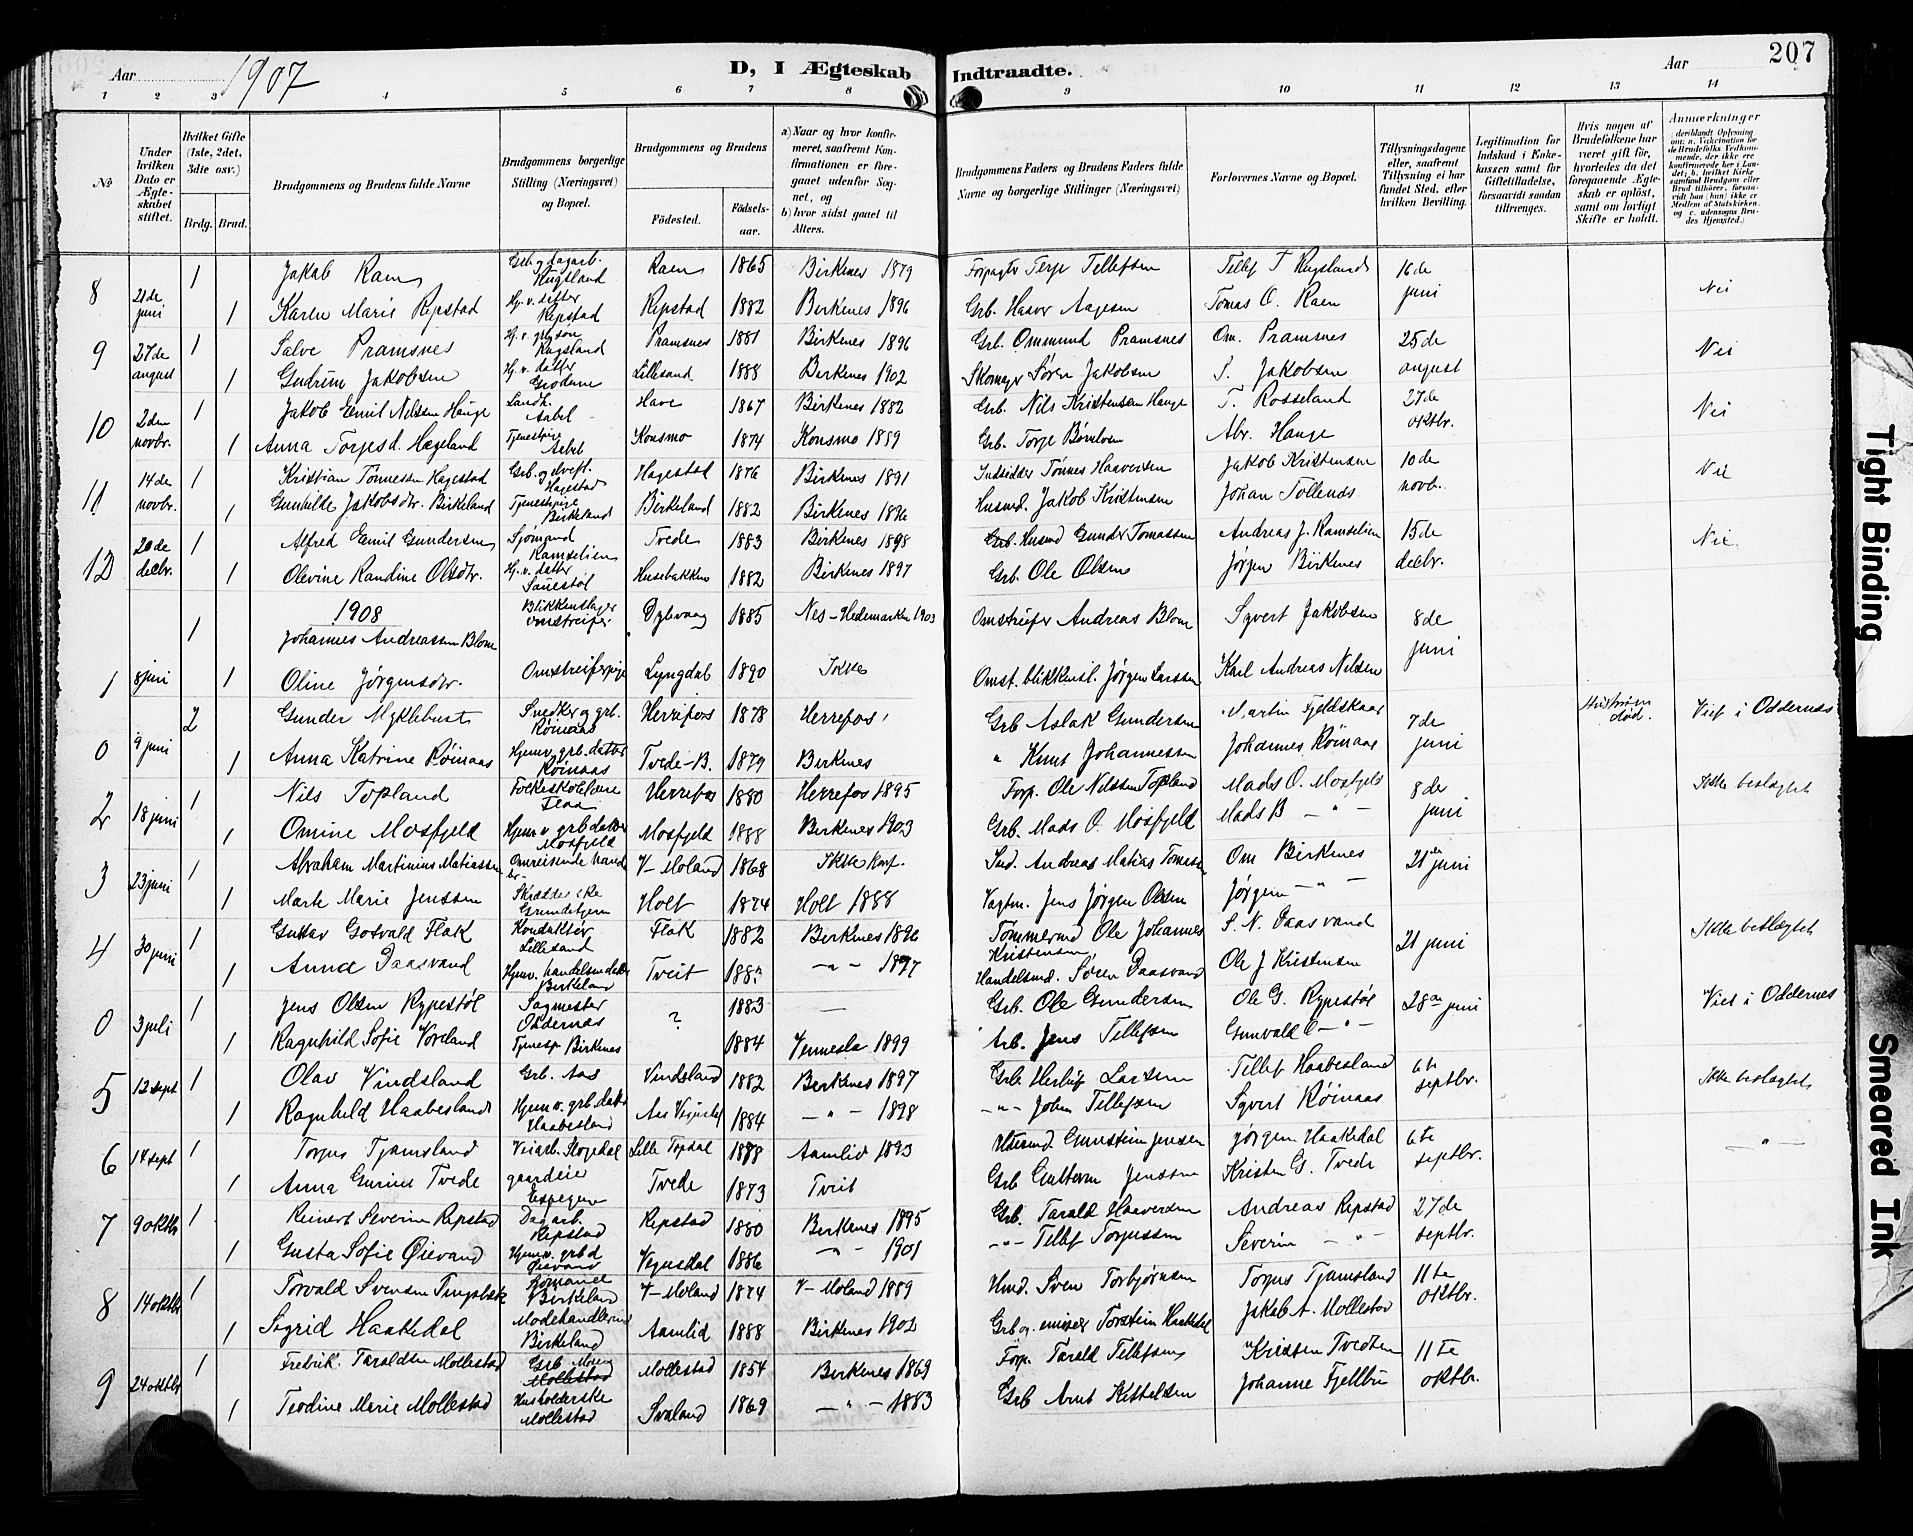 207
Aar 1907 D, I Ægteskab Indtraadte. Aar
1 2 3 4 5 6 7 8 9 10 11 12 13 14
No
Under hvilken Dato er Ægteskabet stiftet.
Hvilket Gifte (1ste, 2det, 3die osv.)
Brdg. Brud.
Brudgommens og Brudens fulde Navne
Brudgommens borgerlige Stilling (Næringsvei) og Bopæl.
Brudgommens og Brudens
Födested. Födselsaar.
a) Naar og hvor konfirmeret, saafremt Konfirmationen er foregaaet udenfor Sognet, og
b) hvor sidst gaaet til Alters.
Brudgommens Faders og Brudens Faders fulde Navne og borgerlige Stillinger (Næringsvei)
Forlovernes Navne og Bopæl.
Tillysningsdagene eller, saafremt Tillysning ei har fundet Sted, efter hvilken Bevilling.
Legitimation for Indskud i Enkekassen samt for Giftetilladelse, forsaavidt saadan tiltrænges.
Hvis nogen af Brudefolkene har været gift för, hvorledes da det foregaaende Ægteskab er oplöst, samt om lovligt Skifte er holdt.
Anmærkninger
8 21de juni 1 Jakob Raen Grb. og dagarb. Rugsland Raen 1865 Birkenes 1879 Forpagter Terje Tellefsen Tellef T Rugsland 16de juni Nei
1 Karen Marie Repstad Hj. v. datter Repstad Repstad 1882 Birkenes 1896 Grb. Haavor Aagesen Tomas O. Raen
9 27de august 1 Salve Pramsnes Rugsland Pramsnes 1881 Birkenes 1896 Grb. Ommund Pramsnes Om. Pramsnes 25de august Nei
1 Gudrun Jakobsen Hj. v. datter Lillesand 1888 Birkenes 1902 Skomager Søren Jakobsen S. Jakobsen
10 2den novbr. 1 Jakob Emil Nilsen Hauge Landh. 1867 Birkenes 1882 Grb. Nils Kristensen Hauge T. Rosseland 27de oktbr. Nei
1 Anna Torjesd. Hægeland Tjenestpige Konsmo 1874 Konsmo 1889 Grb. Torje Abr. Hauge
11 14de novbr. 1 Kristian Tønnessen Hagestad Hagestad Hagestad 1876 Birkenes 1891 Indsidder Tønnes Haavorsen Jakob Kristensen 10de novb. Nei
1 Gunhilde Jakobsdtr. Birkeland Tjenestepige Birkeland Birkeland 1882 Birkenes 1896 Husmd. Jakob Kristensen Johan Tollends
12 20de decbr. 1 Alfred Emil Gundersen Sjømand Ramselien Tvede 1883 Birkenes 1898 Husmd Gunder Tomassen Andreas J. Ramselien 15de decbr. Nei.
1 Olevine Randine Olsdtr. Hj. v. datter Sauestøl Husebakken 1882 Birkenes 1897 Grb. Ole Olsen Jørgen Birkenes
1908
1 8 juni 1 Johannes Andreassen Blom Blikkenslager omstreifer Dybvaag 1885 Nes-Hedemarken 1903 Omstreifer Andreas Blom Syvert Jakobsen 8de juni
1 Oline Jørgensdtr. Omstreiferpige Lyngdal 1890 Ikke Omst. blikkensl. Jørgen Larssen Karl Andreas Nilsen
0 9 juni 2 Gunder Myklebust Snedker og grb. Røinaas Herrefos 1878 Herrefos Grb Aslak Gundersen Martin Fjeldskaar 7de juni Hustruen død. Viet i Oddernes
1 Anna Katrine Røinaas Hjemv. grb. datter Røinaas Tvede-B. 1879 Birkenes " Knut Johannessen Johannes Røinaas
2 18 juni 1 Nils Topland Folkeskolelærer Flaa Herrefos 1880 Herrefos 1895 Forp. Ole Nilssen Topland Mads O. Mosfjeld 8de juni Ikke beslægtet
1 Omine Mosfjeld Hjem v. grb datter Mosfjeld Mosfjeld 1888 Birkenes 1903 Grb. Mads O. Mosfjeld Mads B - " -
3 23 juni 1 Abraham Martinius Matiassen Omreisende V-Moland 1868 Ikke konf. Ind. Andreas Matias Om Birkenes 21de juni
1 Marte Marie Jenssen Holt 1874 Holt 1888 Jens Jørgen Olsen Jørgen - " -
4 30 juni 1 Gustav Gosvald Flak Konduktør Lillesand Flak 1882 Birkenes 1896 Tømmermd Ole Johannes Kristensen S. N. Daasvand 21 juni Ikke beslægtet
1 Anna Daasvand Birkeland Tveit - " - 1897 Handelsmd. Søren Daasvand Ole J Kristensen
0 3 juli 1 Jens Olsen Rypestøl Sagmester Oddernes ? 1883 — Grb. Ole Gundersen Ole G. Rypestøl 28de juni Viet i Oddernes
1 Ragnhild Sofie Voreland Tjenesp Birkenes 1884 Vennesla 1899 Arb. Jens Tellefsen Gunvald O - " -
5 12 sept 1 Olav Vindsland Grb. Aas Vindsland 1882 Birkenes 1897 Grb. Herluf Larsen Tellef Haabesland 6te septbr. Ikke beslægtet
1 Ragnhild Haabesland Hjem v. grb. datter Haabesland 1884 - " - 1898 - " - John Tellefsen Syvert Røinaas
6 14 sept 1 Torjus Tjamsland Lille Topdal 1888 Aamlid 1893 Gunstein Jensen Jørgen Haakedal 6te septbr. - " -
1 Anna Gurine Tvede Espegren Tvede 1873 Tveit Grb Guttorm Jenssen Kristen G. Tvede
7 9 oktbr 1 Reinert Severin Repstad Dagarb. Repstad Repstad 1880 Birkenes 1895 Grb. Tarald Haavorsen Andreas Repstad 27de septbr.
1 Gusta Sofie Øievand Hjem v. grb d Øievand Vegusdal 1886 - " - 1901 - " - Tellef Torjussen Severin - " -
8 14 oktbr 1 Torvald Svensen Birkeland V-Moland 1874 V-Moland 1889 Hmd. Sven Torbjørnsen Torjus Tjamsland 11te oktbr.
1 Sigrid Haakedal Modehandlerinde Birkeland Aamlid 1888 Birkenes 1902 Grb og Torstein Haakedal Jakob A. Mollestad
9 24 oktbr 1 Fredrik Taraldsen Mollestad Grb Mollestad Mollestad 1854 Birkenes 1869 Forp. Tarald Tellefsen Kristen Tvedten 11te oktbr.
1 Teodine Marie Mollestad Husholderske Mollestad Svaland 1869 - " - 1883 Grb Arnt Kittelsen Johanne Fjellbu
Tight Binding
Smeared Ink